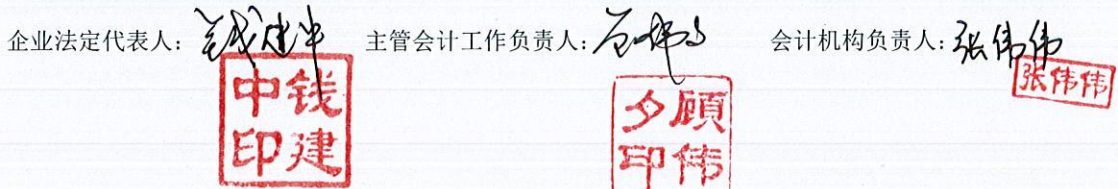 企业法定代表人：钱建中 主管会计工作负责人：顾伟夕 会计机构负责人：张伟伟
中钱
印建
夕顾
印伟
张伟伟